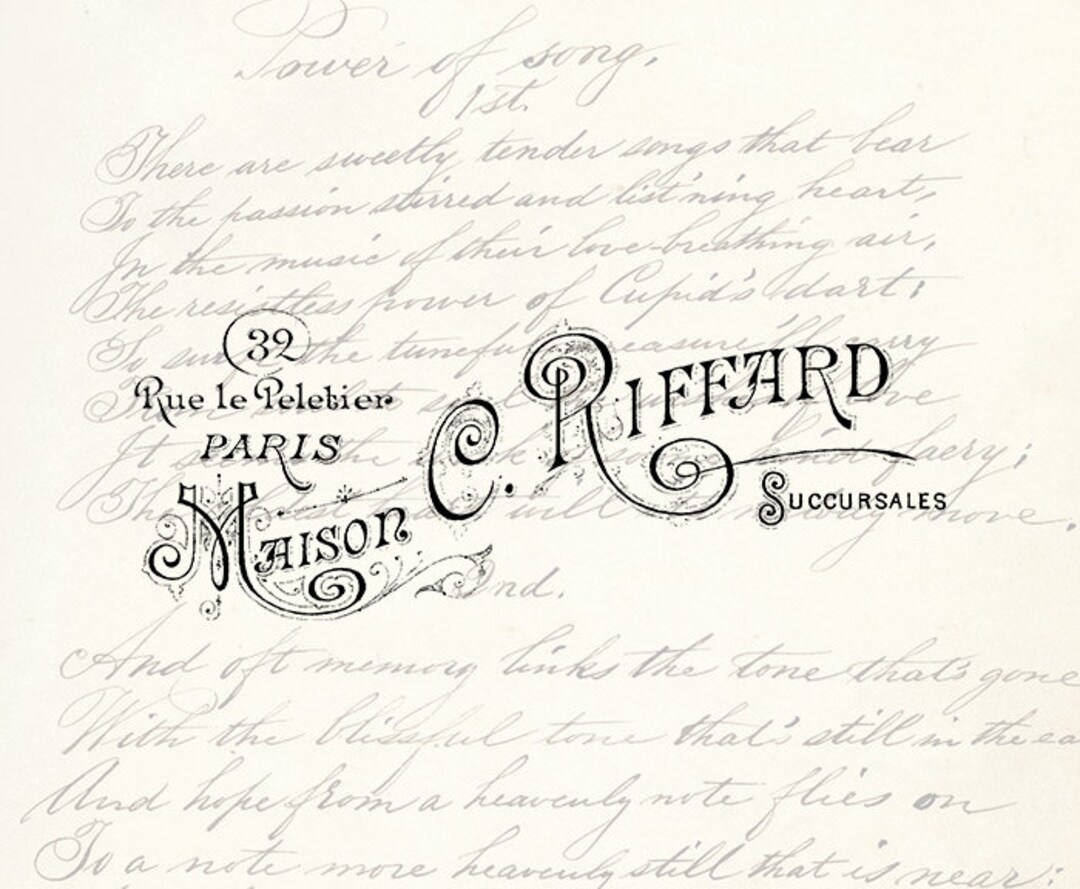 Power of song.
1st.
There are sweetly tender songs that bear
To the passion stirred and list'ning heart,
In the music of their love-breathing air,
The resistless power of Cupid's dart;
the tuneful
32
Rue le Peletier
PARIS
MAISON
C. RIFFARD
SUCCURSALES
It
will move.
2nd.
And oft memory links the tone that's gone
With the blissful tone that's still in the ea
And hope from a heavenly note flies on
To a note more heavenly still that is near;